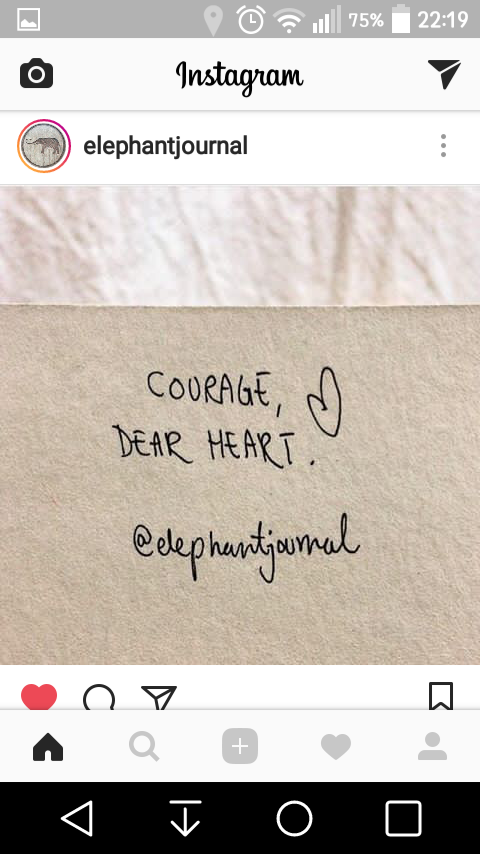 75% 22:19
Instagram
elephantjournal
COURAGE,
DEAR HEART.
@elephantjournal